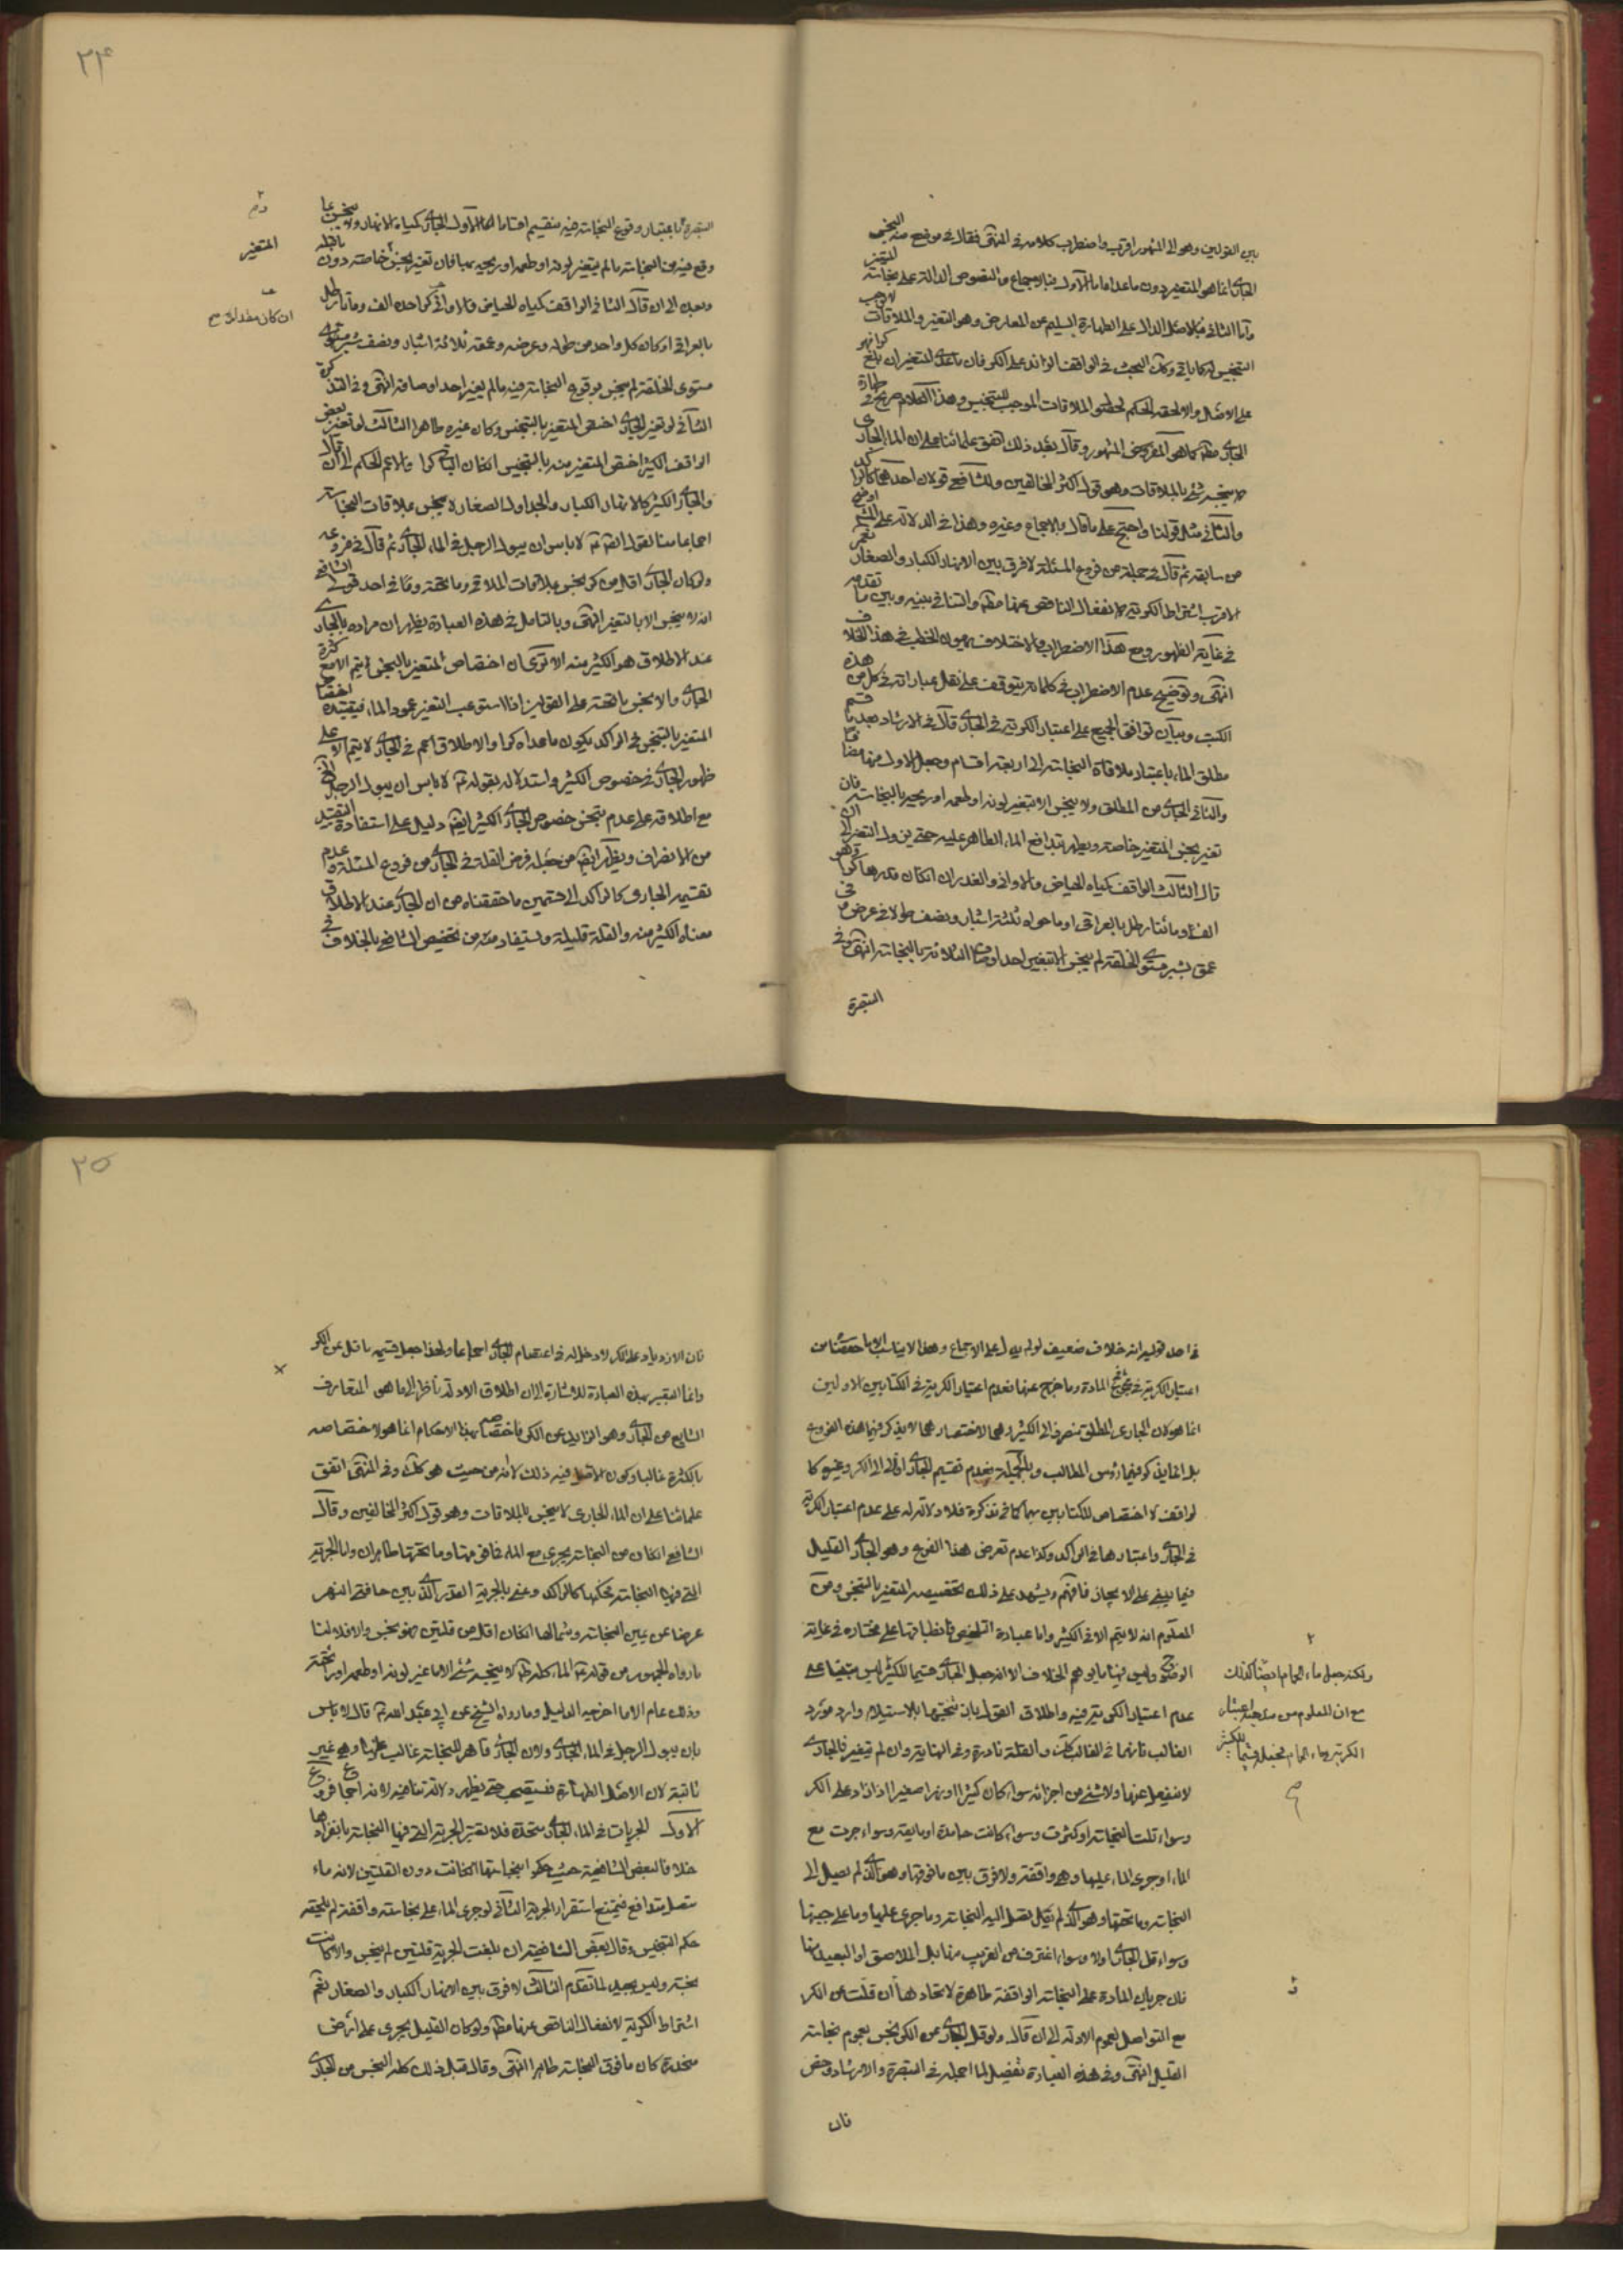 ٢٤
بين القولين وهو الى المشهور اقرب واضطرب كلامه في المنتهى فقال في موضع منه النجس
الجاري انما هو المتغير دون ما عداه اما الاول فبالاجماع والنصوص الدالة على نجاسة المتغير
واما الثاني فبالاصل الدال على الطهارة السليم عن المعارض وهو التغير والملاقات لا يوجب
التنجيس لما ياتي وكك البحث في الواقف الزائد على الكر فان ما عدا المتغير ان بلغ كرا فهو
على الاصل والا لحقه الحكم لحصول الملاقات الموجب للتنجيس وهذا الكلام صريح في طهارة
الجاري مطلقا كما هو المفروض المشهور وقال بعد ذلك اتفق علمائنا على ان الماء الجاري
لا ينجسه شئ بالملاقات وهو قول اكثر المخالفين وللشافعي قولان احدهما كالراكد
والثاني مثل قولنا واحتج على ما قال بالاجماع وغيره وهذا في الدلالة على المشهور اوضح
من سابقه ثم قال في جملة من فروع المسئلة لا فرق بين الانهار الكبار والصغار نعم
الاقرب اشتراط الكرية لانفعال الناقص عنها مطلقا والتنافي بينه وبين ما تقدم
في غاية الظهور ومع هذا الاضطراب والاختلاف يهون الخطب في هذا الخلاف
انتهى وتوضيح عدم الاضطراب في كلماته يتوقف على نقل عباراته في كل من هذه
الكتب وبيان توافق الجميع على اعتبار الكرية في الجاري قال في الارشاد بعد ما قسم
مطلق الماء باعتبار ملاقاة النجاسة الى اربعة اقسام وجعل الاول منها مضافا
والثاني الجاري من المطلق ولا ينجس الا بتغير لونه او طعمه او ريحه بالنجاسة فان
تغير نجس المتغير خاصة ويطهر بتدافع الماء الطاهر عليه حتى يزول التغير الى ان
قال الثالث الواقف كمياه الحياض والاواني والغدران ان كان قدرها كرا وهو
الف ومائتا رطل بالعراقي او ما حواه ثلثة اشبار ونصف طولا في عرض في
عمق بشبر مستوي الخلقة لم ينجس الا بتغير احد اوصافها الثلاثة بالنجاسة انتهى وفي
التبصرة
التبصرة باعتبار وقوع النجاسة فيه ينقسم اقساما الاول الجاري كمياه الانهار ولا ينجس بما
وقع فيه من النجاسة ما لم يتغير لونه او طعمه او ريحه بها فان تغير نجس خاصة دون ما قبله
وبعده الى ان قال الثاني الواقف كمياه الحياض والاواني كرا حده الف ومائتا رطل
بالعراقي او كان كل واحد من طوله وعرضه وعمقه ثلاثة اشبار ونصف بشبر مستقيم
مستوى الخلقة لم ينجس بوقوع النجاسة فيه ما لم يغير احد اوصافه انتهى وفي التذكرة
الثاني لو تغير الجاري اختص المتغير بالتنجيس وكان غيره طاهرا الثالث لو تغير بعض
الواقف الكثير اختص المتغير منه بالتنجيس ان كان الباقي كرا والا عم الحكم الى ان قال
والجاري الكثير كالانهار الكبار والجداول الصغار لا ينجس بملاقات النجاسة
اجماعا منا لقوله لا باس ان يبول الرجل في الماء الجاري ثم قال في فروعه
ولو كان الجاري اقل من كر نجس بملاقات الملاقي وما تحته وفي احد قولي الشافعي
انه لا ينجس الا بالتغير انتهى وبالتامل في هذه العبارة يظهر ان مراده بالجاري
عند الاطلاق هو الكثير منه الا ترى ان اختصاص المتغير بالنجس لا يتم الا مع كثرة
الجاري والا نجس ما تحته على القولين اذا استوعب التغير عمود الماء فتقييده اختصاص
المتغير بالتنجس في الراكد بكون ما عداه كرا والاطلاق اعم في الجاري لا يتم الا على
ظهور الجاري في خصوص الكثير واستدلاله بقوله لا باس ان يبول الرجل الخ
مع اطلاقه على عدم تنجس خصوص الجاري الكثير ايضا دليل على استفادة التقييد
من الانصراف ويظهر ايضا من جعله فرض القلة في الجاري من فروع المسئلة وعدم
تقسيم الجاري كالراكد الى قسمين ما حققناه من ان الجاري عند الاطلاق
معناه الكثير منه والقلة قليلة ويستفاد منه من تخصيص الشافعي بالخلاف في
المتغير
ان كان مقداره صح
٢٥
في احد قوليه انه خلاف ضعيف لو لم يدل على الاجماع وهذا لا يناسب الا ما حققنا من
اعتبار الكرية في مجموع المادة وما خرج عنها فعدم اعتبار الكرية في الكتابين الاولين
انما هو لان الجاري المطلق منصرف الى الكثير وهما لاختصارهما لا يذكر فيهما هذه الفروع
بل انما يذكر فيهما رؤس المطالب وبالجملة فعدم تقسيم الجاري الى الكر وغيره كا
لواقف لا اختصاص للكتابين بهما كما في تذكرة فلا دلالة له على عدم اعتبار الكرية
في الجاري واعتبارها في الراكد وكذا عدم تعرض هذا الفرع وهو الجاري القليل
فيما يبني على الايجاز فافهم ويشهد على ذلك تخصيص المتغير بالتنجس ومن
المعلوم انه لا يتم الا في الكثير واما عبارة التلخيص فانطباقها على مختاره في غاية
الوضوح وليس فيها ما يوهم الخلاف الا انه جعل الجاري قسيما للكثير ليس مبنيا على
عدم اعتبار الكرية فيه واطلاق القول بان تنجسها بالاستيلاء وارد مورد
الغالب فانهما في الغالب كك والقلة نادرة وفي النهاية وان لم تتغير فالجاري
لا ينفعل عنها ولا شئ من اجزائه سواء كان كثيرا او نهرا صغيرا اذا زاد على الكر
وسواء قلت النجاسة او كثرت وسواء كانت جامدة او مايعة وسواء جرت مع
الماء او جرى الماء عليها وهي واقفة ولا فرق بين ما فوقها وهو الذي لم يصل الى
النجاسة وما تحتها وهو الذي لم يصل اليه النجاسة وما جرى عليها وما على جنبها
وسواء قل الجاري او لا وسواء اغترف من القريب منها بل الملاصق او البعيد منها
فان جريان المادة على النجاسة الواقفة طاهرة لاتحادها ان قلت عن الكر
مع التواصل لعموم الادلة الى ان قال ولو قل الجاري عن الكر نجس لعموم نجاسة
القليل انتهى وفي هذه العبارة تفصيل لما اجمله في التبصرة والارشاد وخص
فان
ولكنه جعل ماء الحمام ايضا كذلك
مع ان المعلوم من مذهبه اعتبار
الكرية في ماء الحمام فجعل قسيما للكثير
فان الازدياد على الكر لا دخل له في اعتصام الجاري اجماعا ولهذا جعل قسيمه ما قل عن الكر
وانما التعبير بهذه العبارة للاشارة الى ان اطلاق الادلة ناظر الى ما هو المتعارف
الشايع من الجاري وهو الزايد عن الكر فاختصاصه بهذا الاحكام انما هو لاختصاصه
بالكثرة غالبا وكون الاقل فيه ذلك لانه من حيث هو كك وفي المنتهى اتفق
علمائنا على ان الماء الجاري لا ينجس بالملاقات وهو قول اكثر المخالفين وقال
الشافعي ان كان من النجاسة يجرى مع الماء فما فوقها وما تحتها طاهران واما الجرية
التي فيها النجاسة فحكمها كالراكد وعنى بالجرية القدر الذي بين حافتي النهر
عرضا عن يمين النجاسة وشمالها ان كان اقل من قلتين فهو نجس والا فلا لنا
ما رواه الجمهور من قوله الماء كله لا ينجسه شئ الا ما غير لونه او طعمه او رائحته
وذلك عام الا ما اخرجه الدليل وما رواه الشيخ عن ابي عبد الله قال لا باس
بان يبول الرجل في الماء الجاري ولان الجاري قاهر للنجاسة غالب عليها وهي غير
ثابتة لان الاصل الطهارة فيستصحب حتى يظهر دلالة تنافيه لانه اجماع فروع
الاول الجريات في الماء الجاري متحدة فلا يعتبر الجرية التي فيها النجاسة بانفرادها
خلافا لبعض الشافعية حيث حكموا بنجاستها ان كانت دون القلتين لانه ماء
متصل متدافع فيمتنع استقرار الجرية الثاني لو جرى الماء على نجاسة واقفة لم يلحقه
حكم التنجيس وقال بعض الشافعية ان بلغت الجرية قلتين لم ينجس والا كانت
نجسة وليس بجيد لما تقدم الثالث لا فرق بين الانهار الكبار والصغار نعم
اشتراط الكرية لانفعال الناقص عنها مطلقا ولو كان القليل يجرى على ارض
منحدرة كان ما فوق النجاسة طاهرا انتهى وقال قبل ذلك كله النجس من الجاري